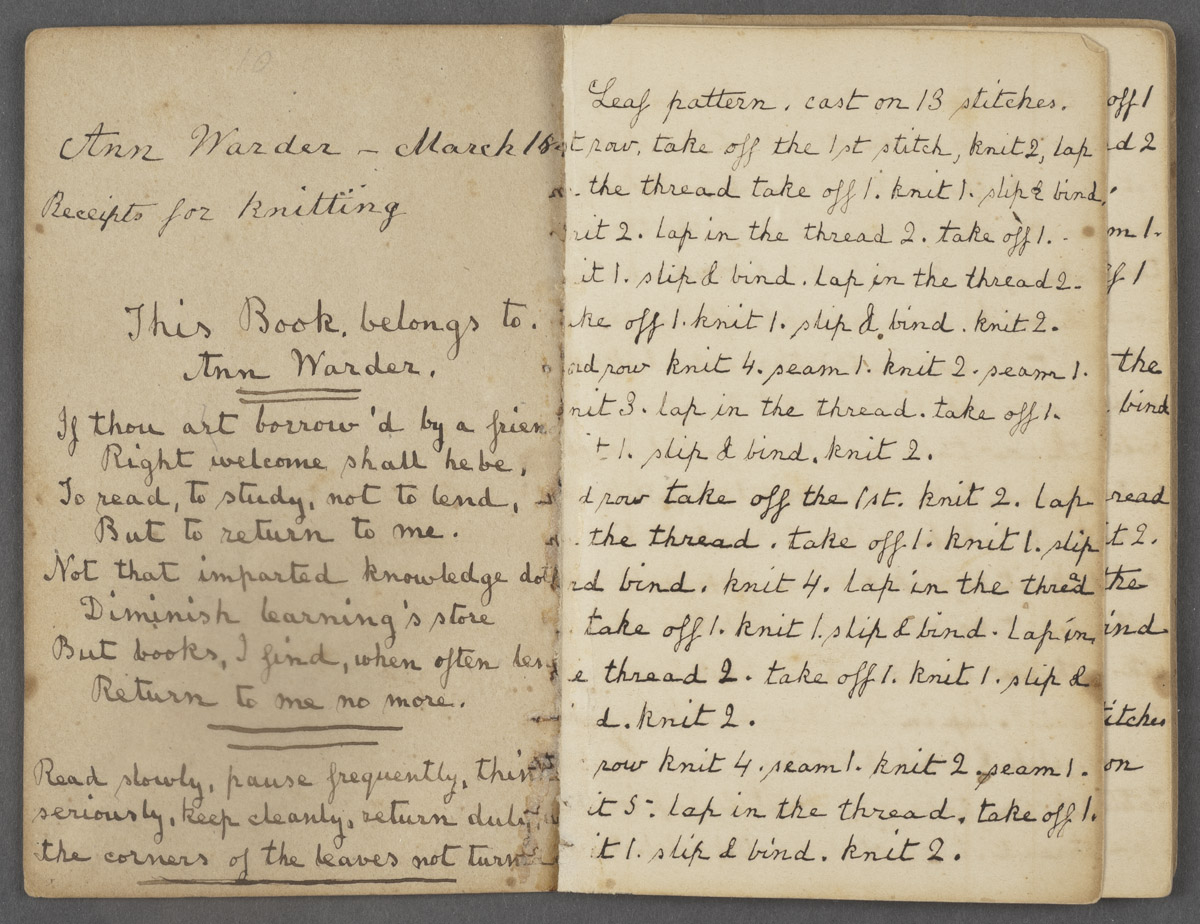 10
Ann Warder - March 18
Receipts for knitting
This Book, belongs to.
Ann Warder.
If thou art borrow'd by a frien
Right welcome shall he be,
To read, to study, not to lend,
But to return to me.
Not that imparted knowledge dot
Diminish learning's store
But books, I find, when often len
Return to me no more.
Read slowly, pause frequently, thin
seriously, keep cleanly, return duly,
the corners of the leaves not turn
Leaf pattern. cast on 13 stitches.
t row, take off the 1st stitch, knit 2, lap
the thread take off 1. knit 1. slip & bind,
nit 2. lap in the thread 2. take off 1.
it 1. slip & bind. lap in the thread 2.
ke off 1. knit 1. slip & bind. knit 2.
row knit 4. seam 1. knit 2. seam 1.
nit 3. lap in the thread. take off 1.
t 1. slip & bind. knit 2.
d row take off the 1st. knit 2. lap
the thread. take off 1. knit 1. slip
d bind. knit 4. lap in the thread
take off 1. knit 1. slip & bind. lap in
e thread 2. take off 1. knit 1. slip &
d. knit 2.
row knit 4. seam 1. knit 2. seam 1.
it 5. lap in the thread, take off 1.
t 1. slip & bind. knit 2.
off 1
d 2
m 1.
ff 1
the
bind
read
it 2.
the
ind
titches
on